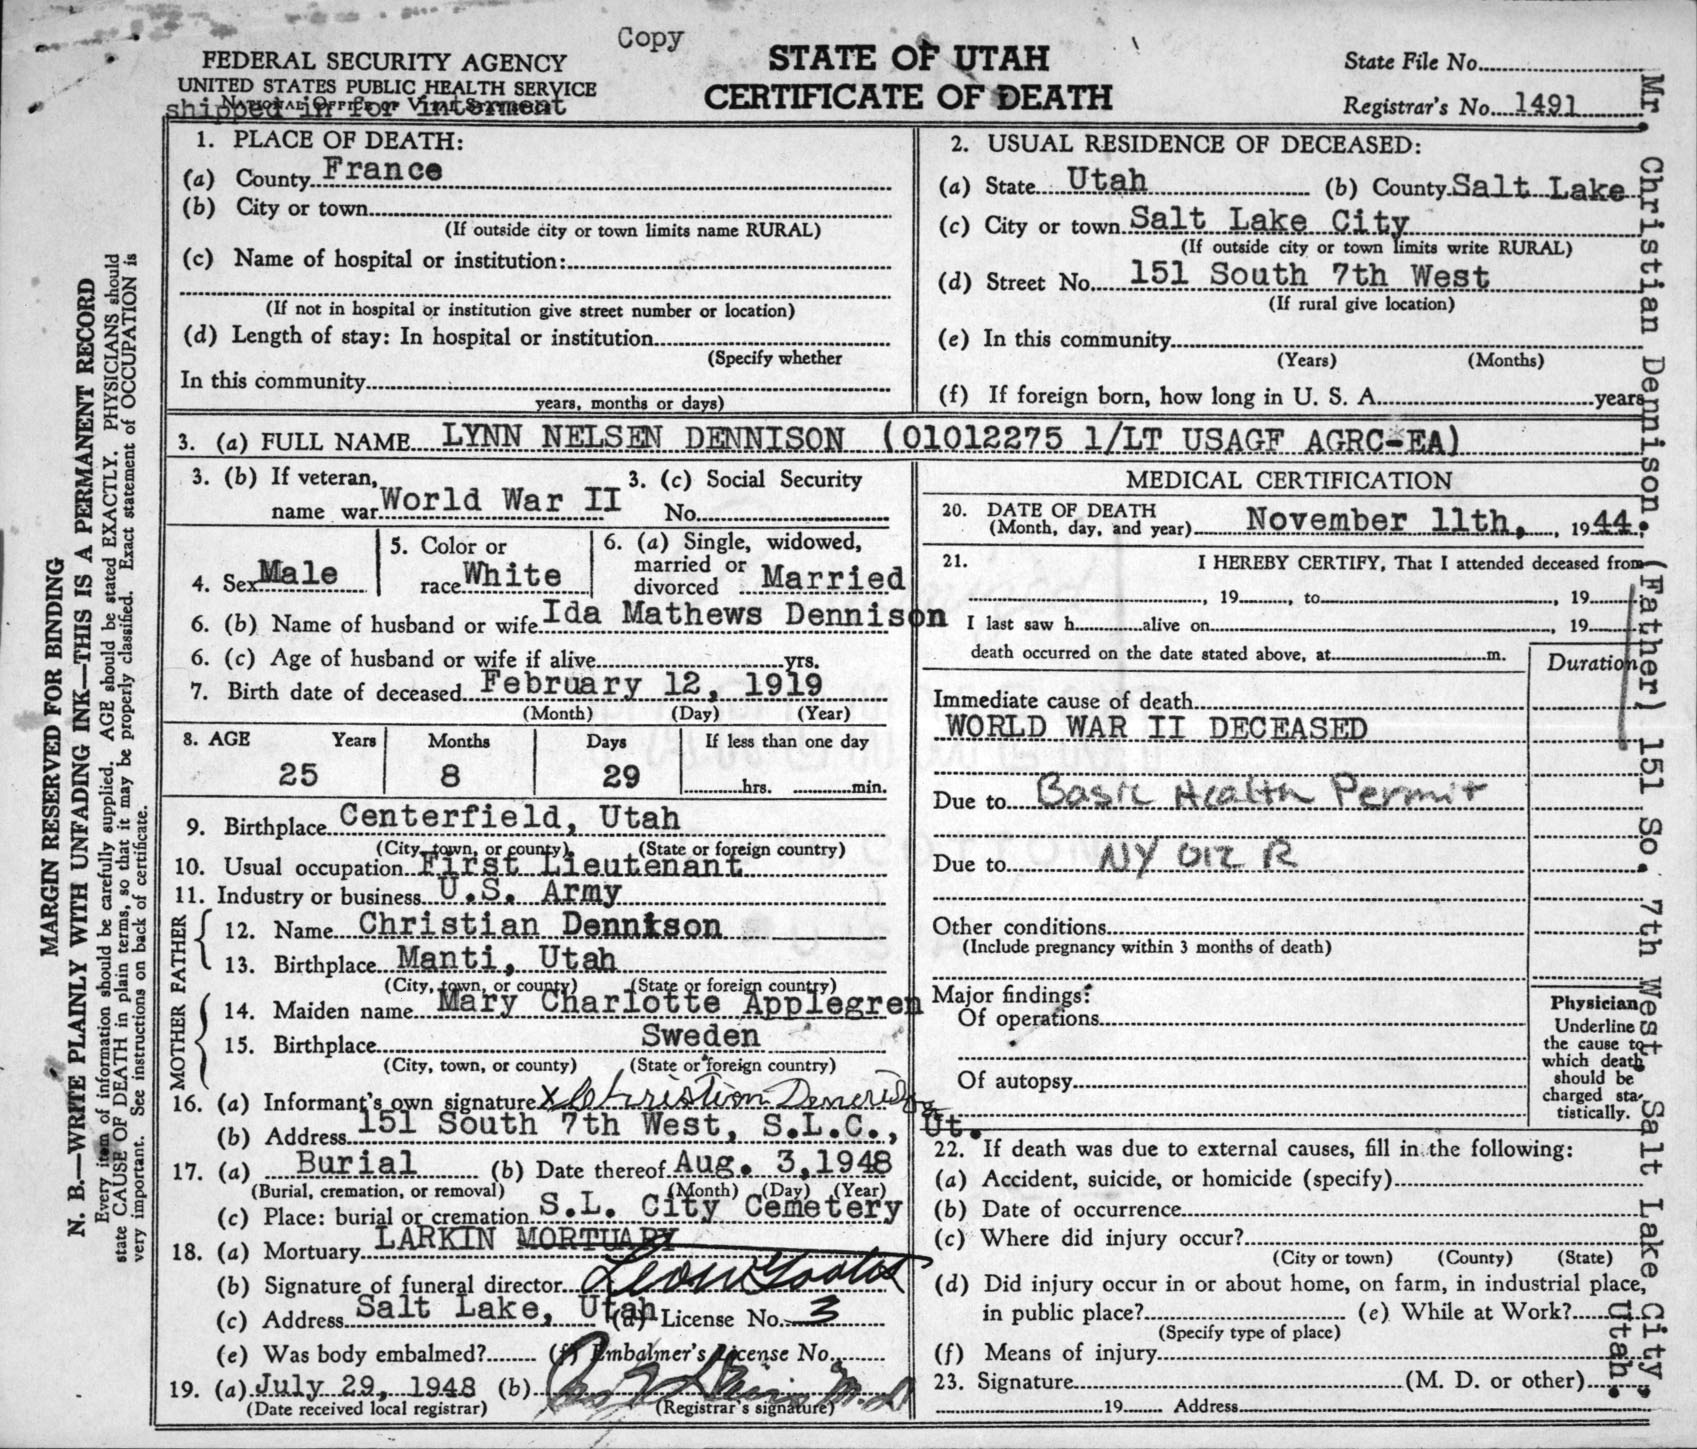 Copy
FEDERAL SECURITY AGENCY
UNITED STATES PUBLIC HEALTH SERVICE
NATIONAL OFFICE OF VITAL STATISTICS
shipped in for interment
STATE OF UTAH
CERTIFICATE OF DEATH
State File No.
Registrar's No. 1491
1. PLACE OF DEATH:
(a) County France
(b) City or town
(If outside city or town limits name RURAL)
(c) Name of hospital or institution:
(If not in hospital or institution give street number or location)
(d) Length of stay: In hospital or institution
(Specify whether
In this community
years, months or days)
2. USUAL RESIDENCE OF DECEASED:
(a) State Utah (b) County Salt Lake
(c) City or town Salt Lake City
(If outside city or town limits write RURAL)
(d) Street No. 151 South 7th West
(If rural give location)
(e) In this community
(Years) (Months)
(f) If foreign born, how long in U. S. A. years
3. (a) FULL NAME LYNN NELSEN DENNISON (01012275 1/LT USAGF AGRC-EA)
3. (b) If veteran, name war World War II
3. (c) Social Security No.
4. Sex Male
5. Color or race White
6. (a) Single, widowed, married or divorced Married
6. (b) Name of husband or wife Ida Mathews Dennison
6. (c) Age of husband or wife if alive yrs.
7. Birth date of deceased February 12, 1919
(Month) (Day) (Year)
8. AGE Years Months Days If less than one day
25 8 29 hrs. min.
9. Birthplace Centerfield, Utah
(City, town, or county) (State or foreign country)
10. Usual occupation First Lieutenant
11. Industry or business U.S. Army
FATHER
12. Name Christian Dennison
13. Birthplace Manti, Utah
(City, town, or county) (State or foreign country)
MOTHER
14. Maiden name Mary Charlotte Applegren
15. Birthplace Sweden
(City, town, or county) (State or foreign country)
16. (a) Informant's own signature x Christian Dennison
(b) Address 151 South 7th West, S.L.C., Ut.
17. (a) Burial (b) Date thereof Aug. 3, 1948
(Burial, cremation, or removal) (Month) (Day) (Year)
(c) Place: burial or cremation S.L. City Cemetery
18. (a) Mortuary LARKIN MORTUARY
(b) Signature of funeral director
(c) Address Salt Lake, Utah (d) License No. 3
(e) Was body embalmed? (f) Embalmer's License No.
19. (a) July 29, 1948 (b)
(Date received local registrar) (Registrar's signature)
MEDICAL CERTIFICATION
20. DATE OF DEATH
(Month, day, and year) November 11th, , 1944.
21. I HEREBY CERTIFY, That I attended deceased from
, 19 , to , 19
I last saw h alive on , 19
death occurred on the date stated above, at m.
Duration
Immediate cause of death
WORLD WAR II DECEASED
Due to Basic Health Permit
Due to NY
Other conditions
(Include pregnancy within 3 months of death)
Major findings:
Of operations
Of autopsy
Physician
Underline
the cause to
which death
should be
charged sta-
tistically.
22. If death was due to external causes, fill in the following:
(a) Accident, suicide, or homicide (specify)
(b) Date of occurrence
(c) Where did injury occur?
(City or town) (County) (State)
(d) Did injury occur in or about home, on farm, in industrial place,
in public place? (e) While at Work?
(Specify type of place)
(f) Means of injury
23. Signature (M. D. or other)
19 Address
Mr. Christian Dennison. (Father) 151 So. 7th West Salt Lake City.
Utah.
MARGIN RESERVED FOR BINDING
N. B.—WRITE PLAINLY WITH UNFADING INK—THIS IS A PERMANENT RECORD
Every item of information should be carefully supplied. AGE should be stated EXACTLY. PHYSICIANS should
state CAUSE OF DEATH in plain terms, so that it may be properly classified. Exact statement of OCCUPATION is
very important. See instructions on back of certificate.